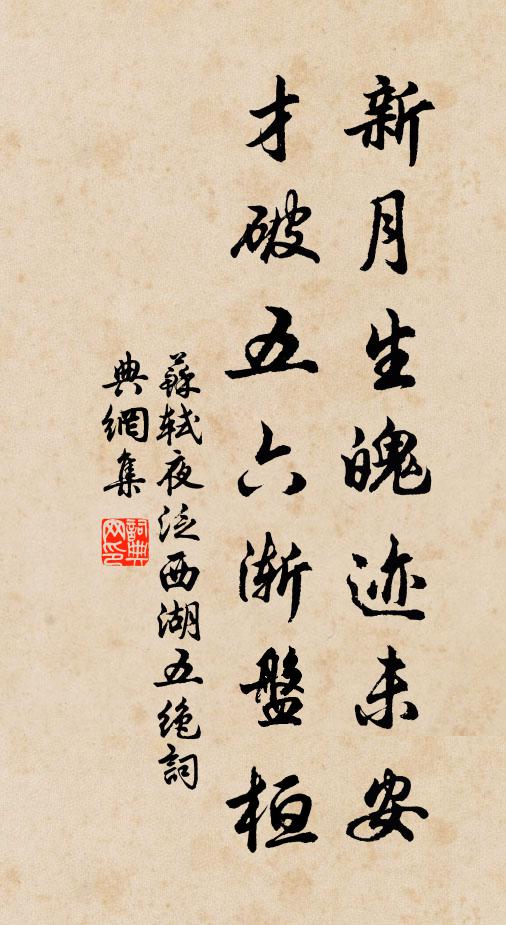 新月生魄迹未安
才破五六渐盤桓
蘇軾夜泛西湖五绝詞
典網集
詞典
网印